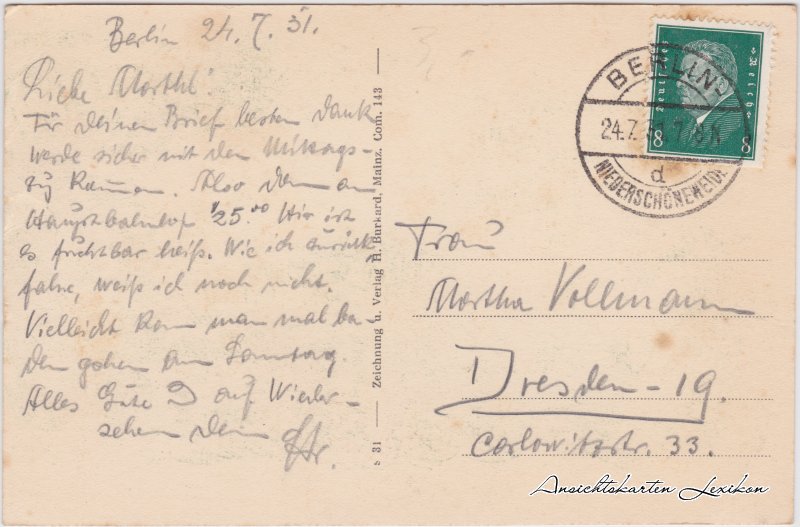 Berlin 24.7.31.
Liebe Marthl!
Für Deinen Brief besten Dank
werde sicher mit dem Mittags-
zug kommen. Also dann am
Hauptbahnhof 25.00 Hier ist
es furchtbar heiß. Wie ich zurück
fahre, weiß ich noch nicht.
Vielleicht kann man mal ba-
den gehen am Sonntag.
Alles Gute u auf Wieder-
sehen Dein
s 31 — Zeichnung u. Verlag H. Burkard, Mainz. Com. 143 —
Deutsches Reich
8 8
BERLIN
24.7.31 7-8 N
d
NIEDERSCHÖNEWEIDE
Frau
Martha Vollmann
Dresden-19.
Carlowitzstr. 33.
Ansichtskarten Lexikon